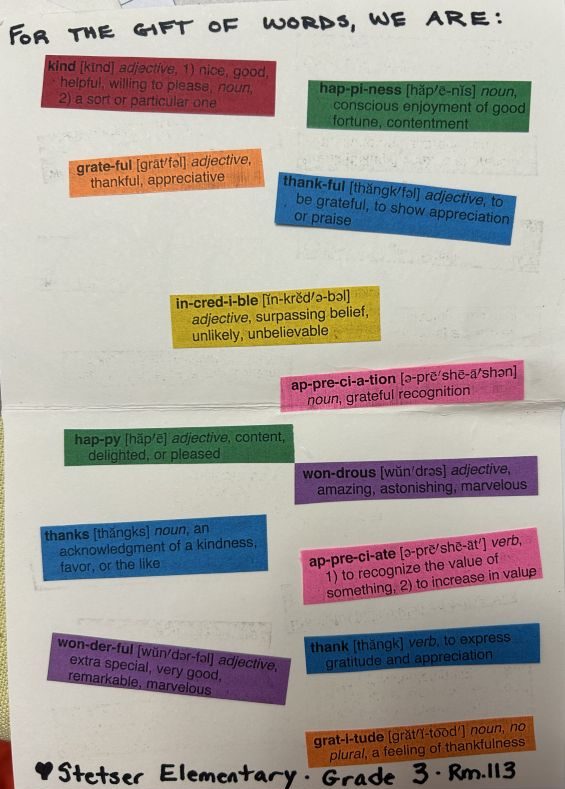 FOR THE GIFT OF WORDS, WE ARE:
kind [kīnd] adjective, 1) nice, good,
helpful, willing to please, noun,
2) a sort or particular one
hap-pi-ness [hăp'ē-nĭs] noun,
conscious enjoyment of good
fortune, contentment
grate-ful [grāt'fəl] adjective,
thankful, appreciative
thank-ful [thăngk'fəl] adjective, to
be grateful, to show appreciation
or praise
in-cred-i-ble [ĭn-krĕd'ə-bəl]
adjective, surpassing belief,
unlikely, unbelievable
ap-pre-ci-a-tion [ə-prē'shē-ā'shən]
noun, grateful recognition
hap-py [hăp'ē] adjective, content,
delighted, or pleased
won-drous [wŭn'drəs] adjective,
amazing, astonishing, marvelous
thanks [thăngks] noun, an
acknowledgment of a kindness,
favor, or the like
ap-pre-ci-ate [ə-prē'shē-āt'] verb,
1) to recognize the value of
something, 2) to increase in value
won-der-ful [wŭn'dər-fəl] adjective,
extra special, very good,
remarkable, marvelous
thank [thăngk] verb, to express
gratitude and appreciation
grat-i-tude [grăt'ĭ-tōōd'] noun, no
plural, a feeling of thankfulness
♥ Stetser Elementary · Grade 3 · Rm.113